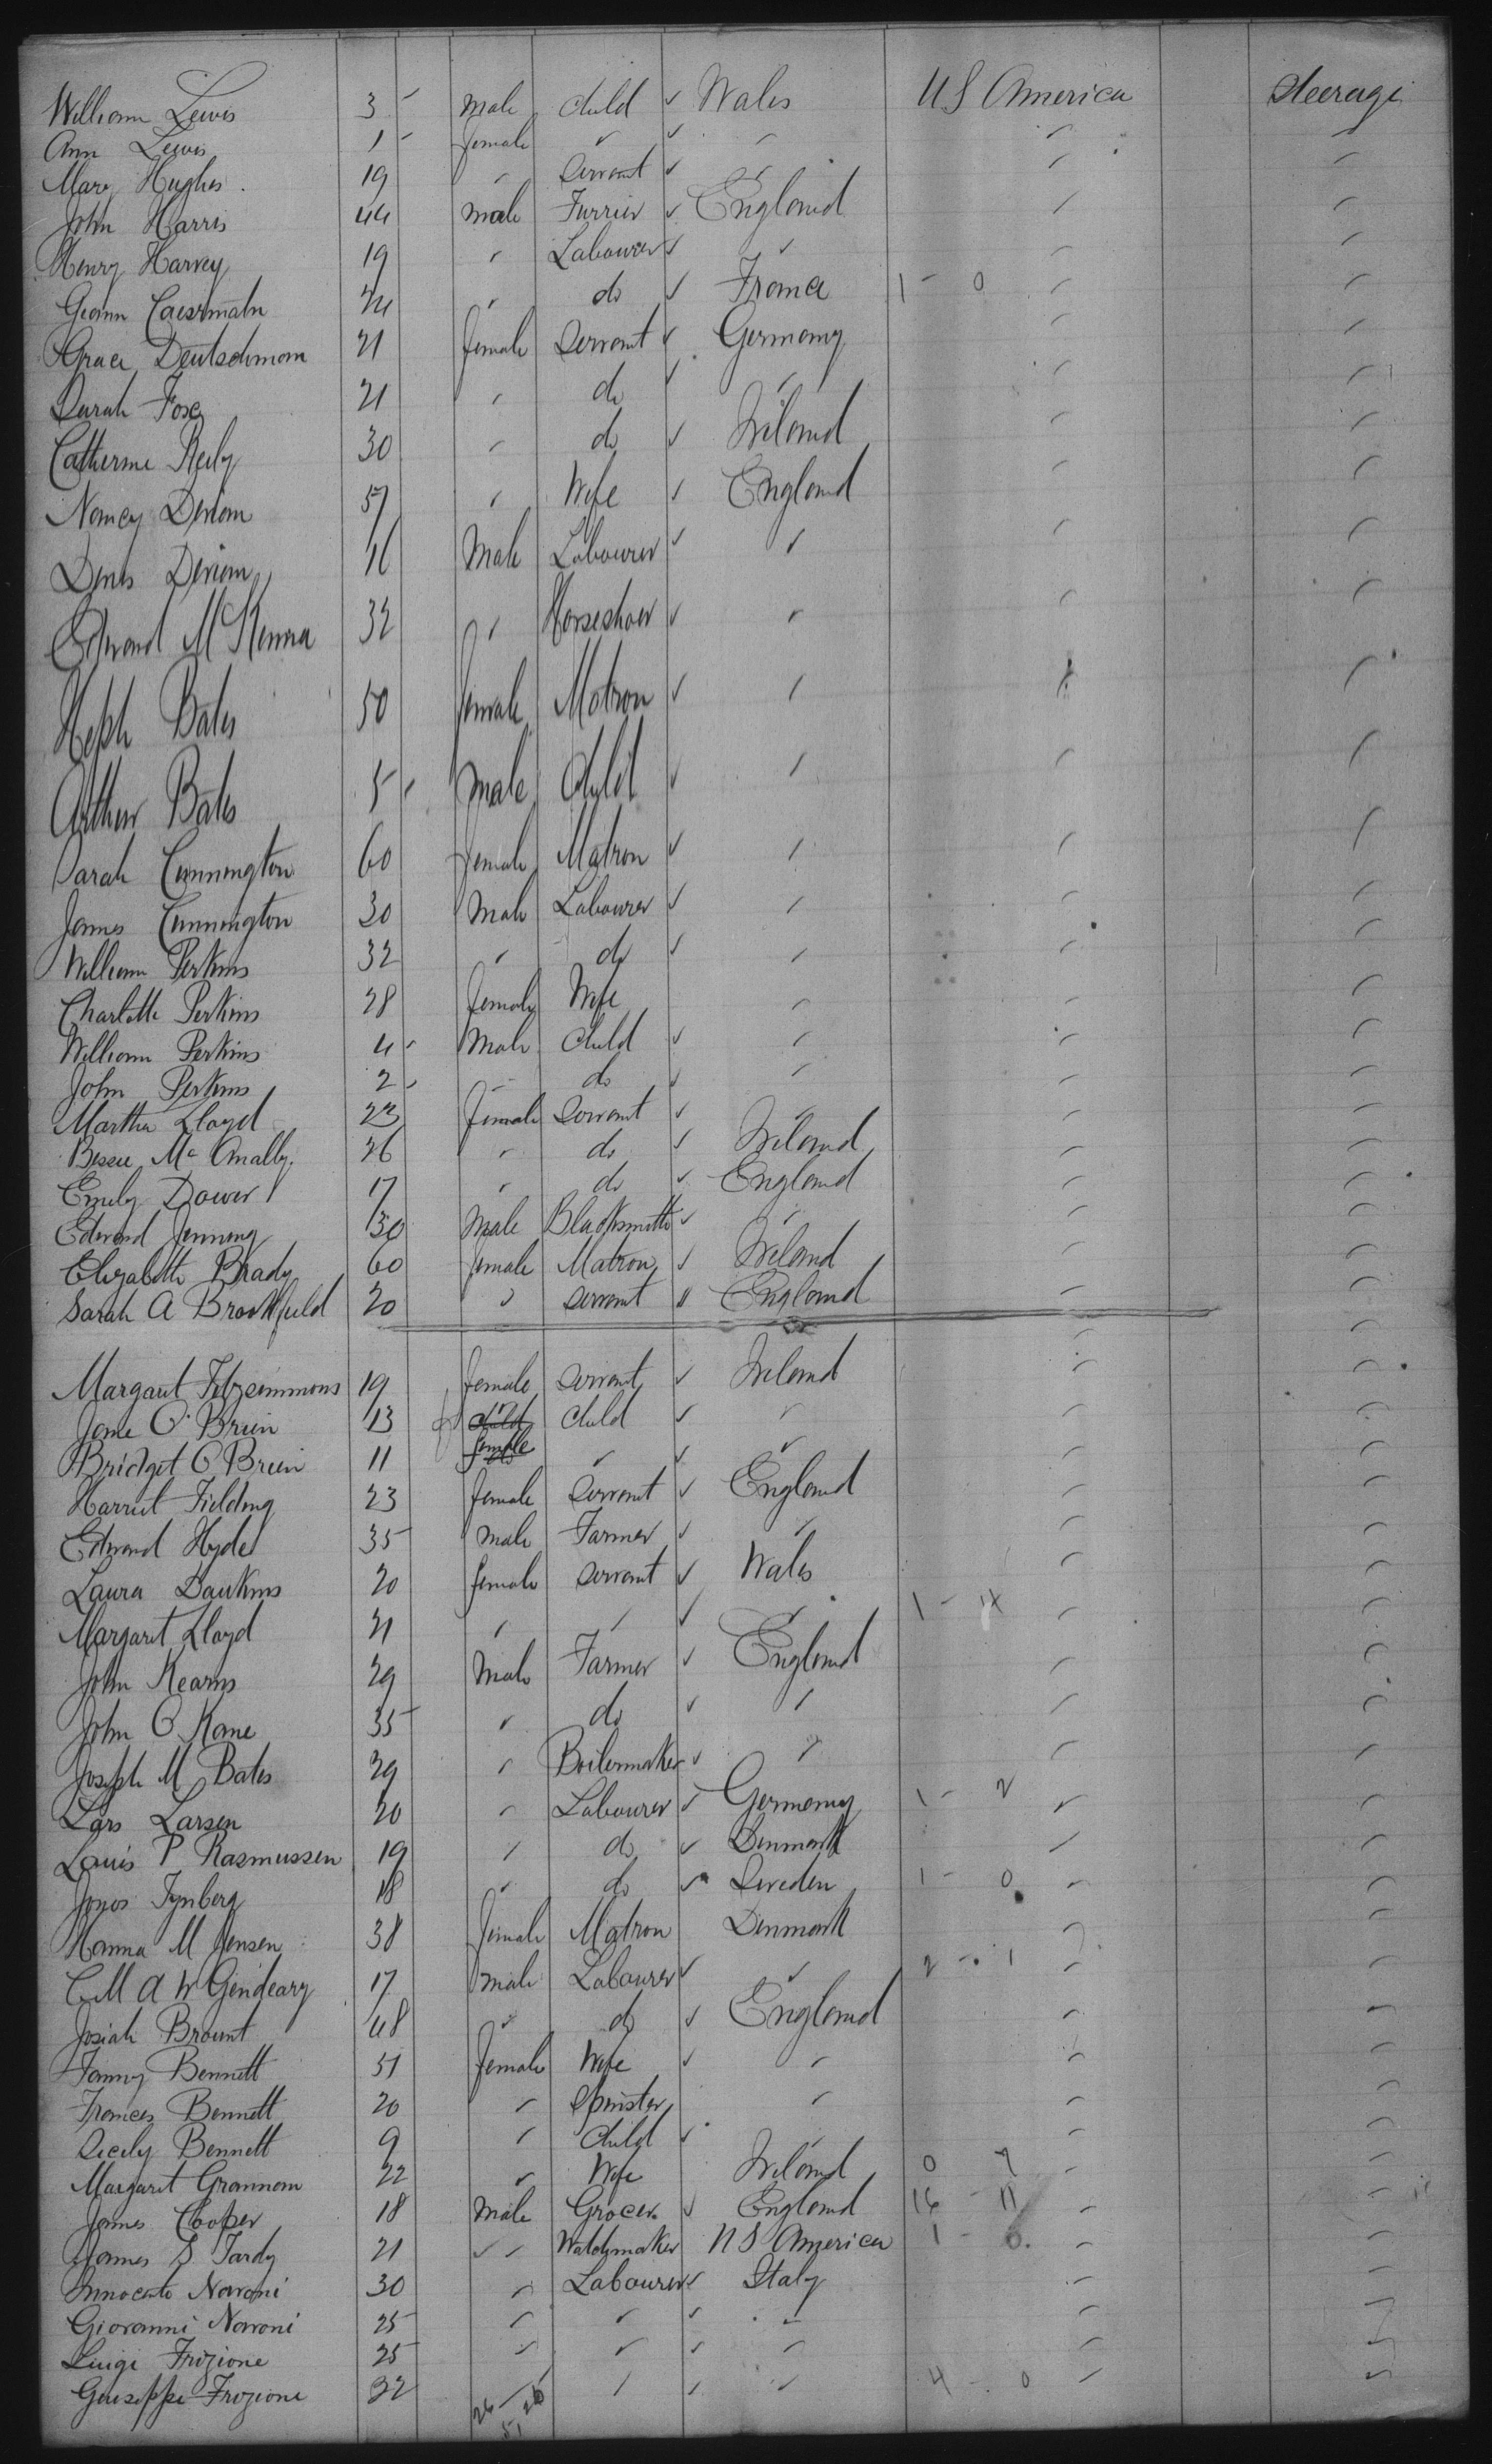 William Lewis 3 male child ✓ Wales US America Steerage
Ann Lewis 1 female " ✓ " " "
Mary Hughes 19 " Servant ✓ " " "
John Harris 44 male Furrier ✓ England " "
Henry Harvey 19 " Labourer ✓ " " "
24 " do ✓ France 1 - 0 " "
Grace Deutschman 21 female Servant ✓ Germany " "
Sarah Foxe 21 " do ✓ " " "
Catherine Reily 30 " do ✓ Ireland " "
Nancy 57 " Wife ✓ England " "
Denis 16 Male Labourer ✓ " " "
Edward McKenna 32 " Horseshoer ✓ " " "
Heph Bates 50 female Matron ✓ " " "
Arthur Bates 5 male Child ✓ " " "
Sarah Cunnington 60 female Matron ✓ " " "
James Cunnington 30 Male Labourer ✓ " " "
William Perkins 32 " do ✓ " " "
Charlotte Perkins 28 female Wife " " "
William Perkins 4 Male Child ✓ " " "
John Perkins 2 " do ✓ " " "
Martha Lloyd 23 female Servant ✓ " " "
Bessie McAnally 26 " do ✓ Ireland " "
Emily Dower 17 " do ✓ England " "
Edward Jenning 30 Male Blacksmith ✓ " " "
Elizabeth Brady 60 female Matron ✓ Ireland " "
Sarah A Brookfield 20 " Servant " England " "
Margaret Fitzsimmons 19 female Servant ✓ Ireland " "
Jane O'Brien 13 child Child ✓ " " "
Bridget O'Brien 11 female " ✓ " " "
Harriet Fielding 23 female Servant ✓ England " "
Edward Hyde 35 male Farmer ✓ " " "
Laura Dawkins 20 female Servant ✓ Wales " "
Margaret Lloyd 21 " " ✓ " 1 - 14 " "
John Kearns 29 Male Farmer ✓ England " "
John O Kane 35 " do ✓ " " "
Joseph M Bates 29 " Boilermaker ✓ " " "
Lars Larsen 20 " Labourer ✓ Germany 1 - 2 " "
Louis P Rasmussen 19 " do ✓ Denmark " "
Jonos Tynberg 18 " do ✓ Sweden 1 - 0 " "
Hanna M Jensen 38 female Matron Denmark " "
17 male Labourer ✓ " 2 - 1 " "
Josiah Brount 48 " do ✓ England " "
Fanny Bennett 51 female Wife ✓ " " "
Frances Bennett 20 " Spinster " " "
Cicely Bennett 9 " Child ✓ " " "
Margaret Grannom 22 " Wife Ireland 0 7 " "
James Cooper 18 Male Grocer ✓ England 16 - 11 " "
James S Tardy 21 " Watchmaker US America 1 - 0 " "
Innocente Navoni 30 " Labourer ✓ Italy " "
Giovanni Navoni 25 " " ✓ " " "
Luigi Frozione 25 " " ✓ " " "
Giuseppe Frozione 32 " " " " 4 - 0 " "
26 26
51